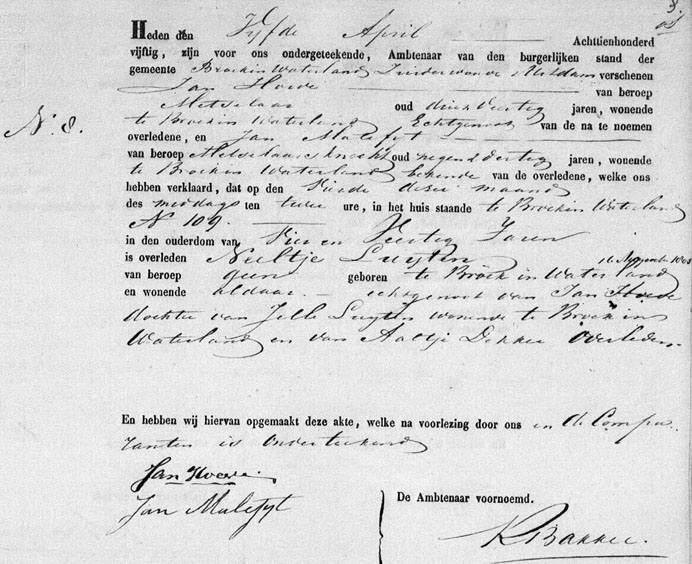 Heden den Vyfde April Achttienhonderd
vijftig, zijn voor ons ondergeteekende, Ambtenaar van den burgerlijken stand der
gemeente Broek in Waterland Zuiderwoude Uitdam verschenen
Jan Hoeve van beroep
Metselaar oud drie en Veertig jaren, wonende
te Broek in Waterland Echtgenoot van de na te noemen
N. 8.
overledene, en Jan Malefyt
van beroep Metselaarsknecht oud negen en dertig jaren, wonende
te Broek in Waterland bekende van de overledene, welke ons
hebben verklaard, dat op den Vierde dezer maand
des middags ten twee ure, in het huis staande te Broek in Waterland
N 109
in den ouderdom van Vier en Veertig Jaren
is overleden Neeltje Luyten
van beroep geen geboren te Broek in Waterland
en wonende aldaar echtgenoot van Jan Hoeve
dochter van Jelle Luyten wonende te Broek in
Waterland en van Aaltje Dekker overleden.
En hebben wij hiervan opgemaakt deze akte, welke na voorlezing door ons en de Compa-
ranten is onderteekend
Jan Hoeve.
Jan Malefyt
De Ambtenaar voornoemd.
K Bakker.